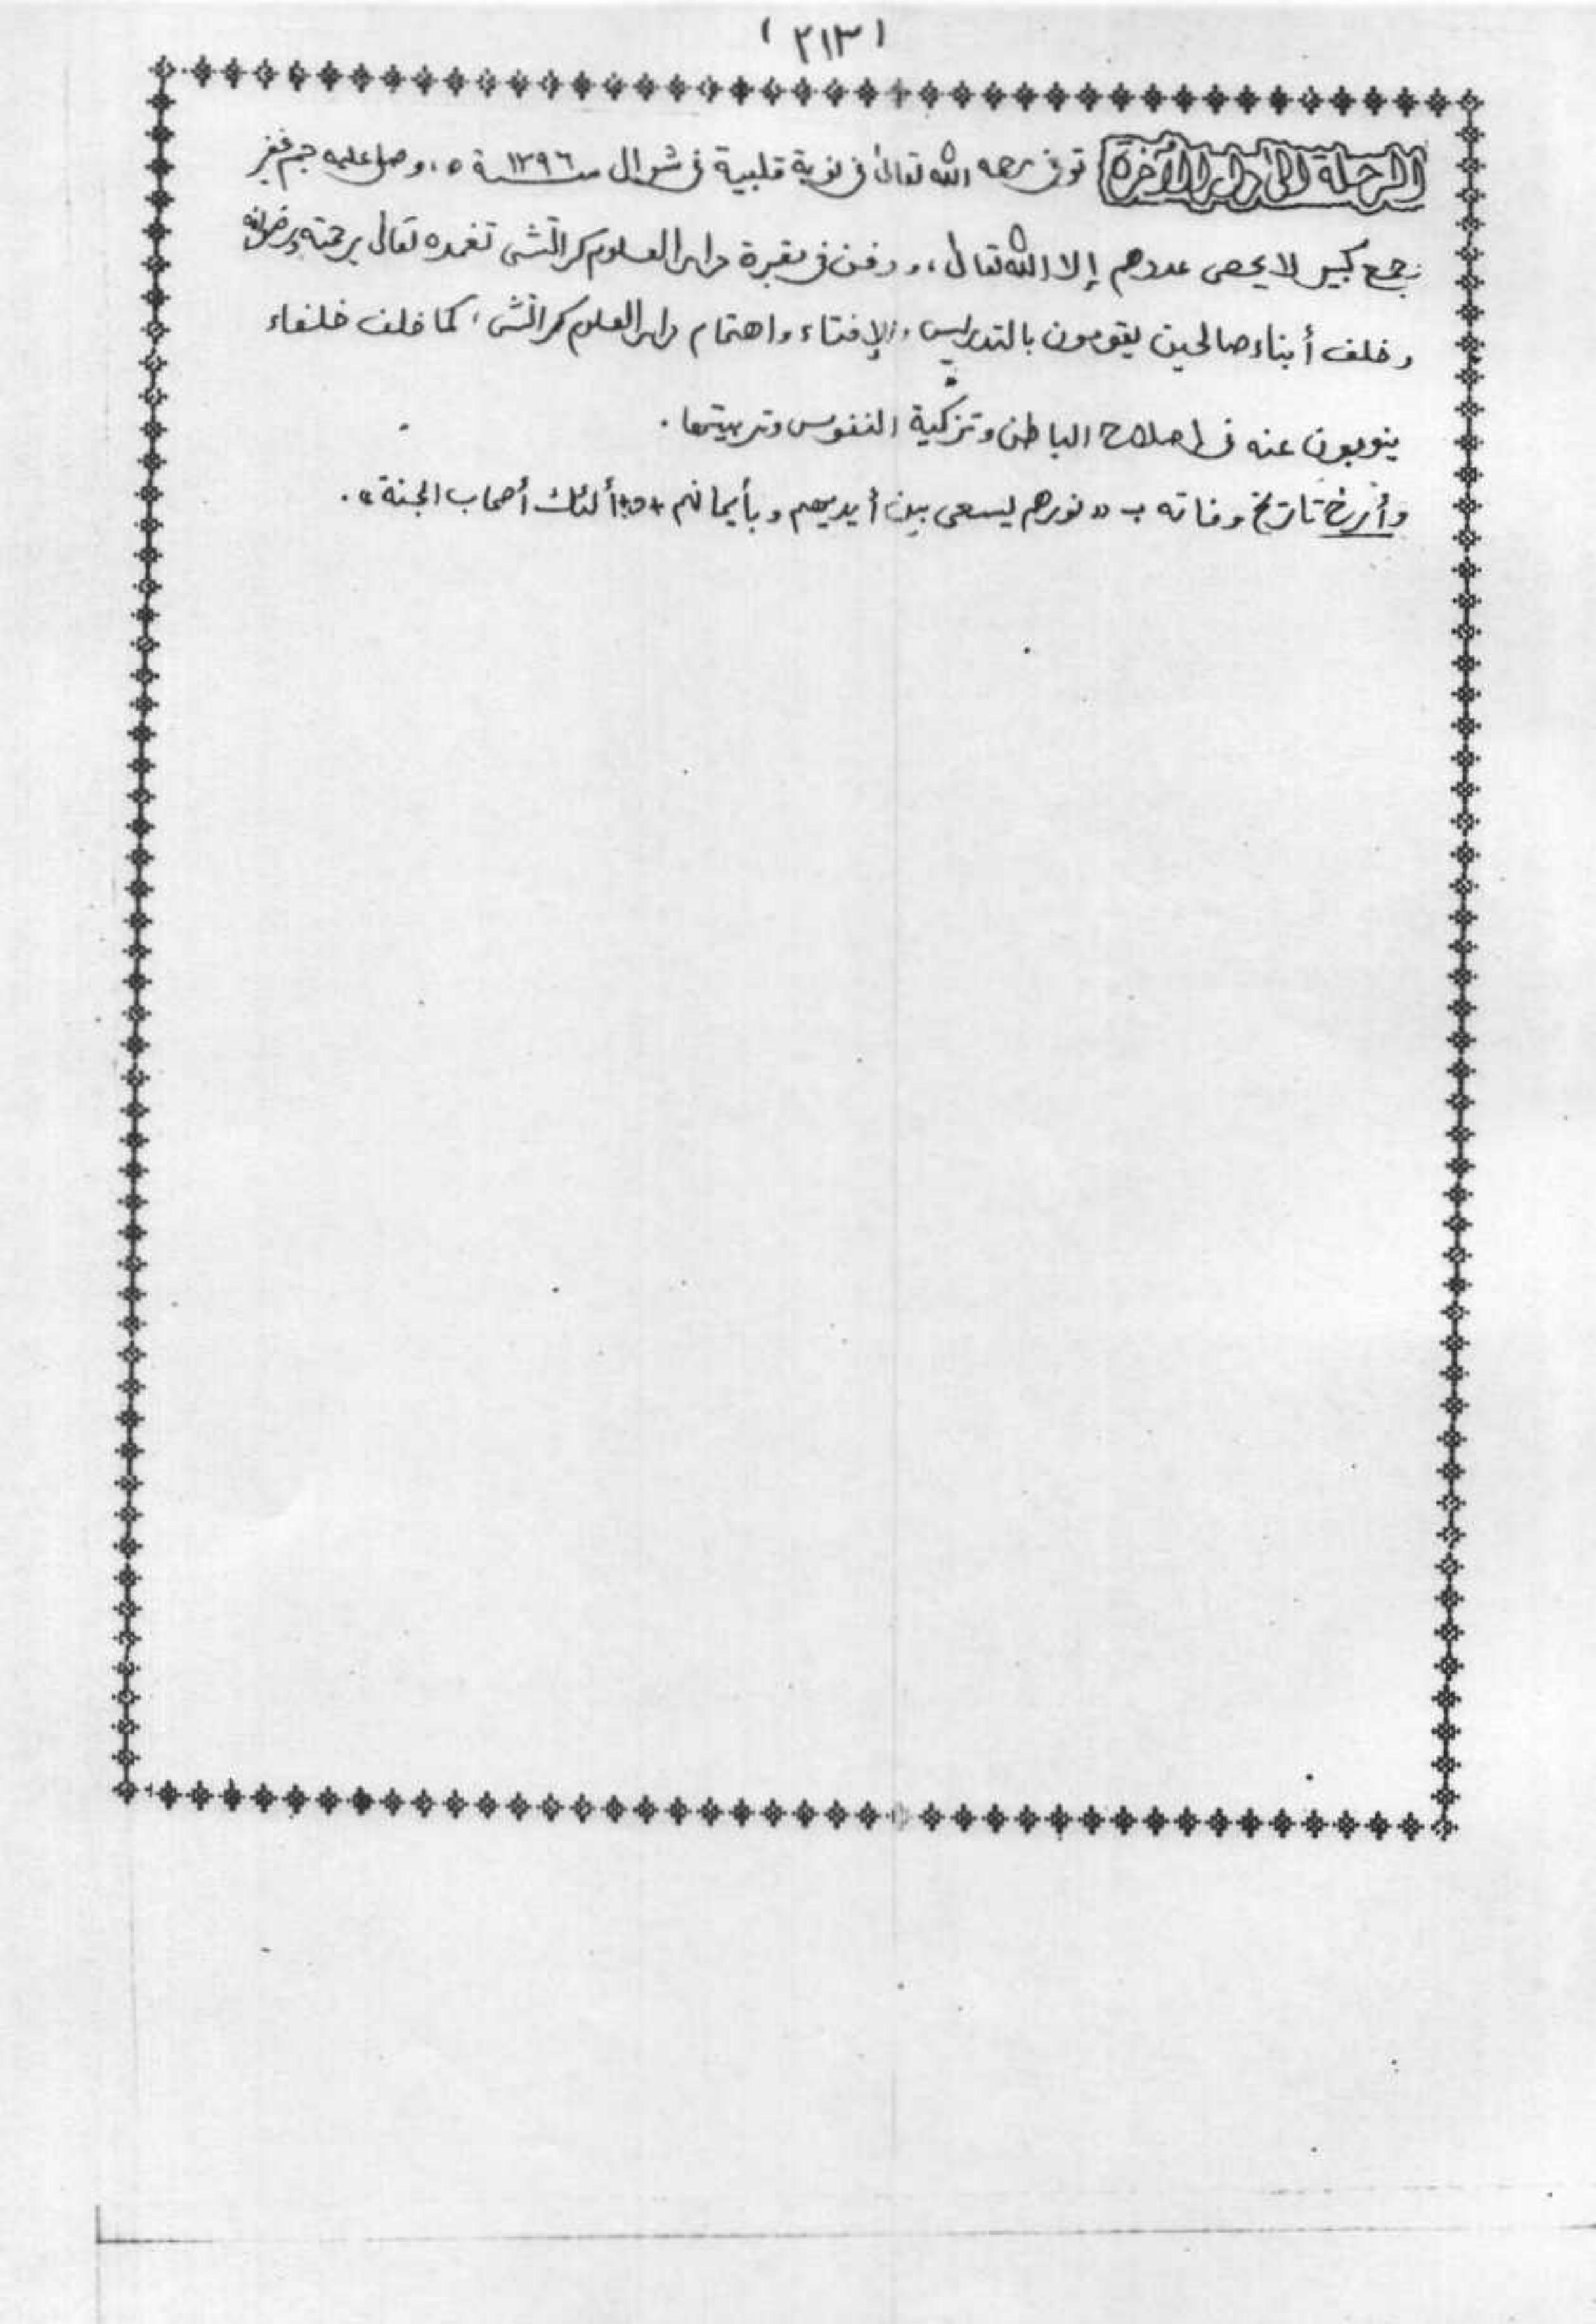 (٢١٣)
الرحلة إلى دار الآخرة توفى رحمه الله تعالى فى نوبة قلبية فى شوال سنة ١٣٩٦ ه، وصلى عليه جم غفير
جمع كبير لا يحصى عددهم إلا الله تعالى، ودفن فى مقبرة دار العلوم كراتشى تغمده تعالى برحمته ورضوانه
وخلف أبناء صالحين يقومون بالتدريس والإفتاء واهتمام دار العلوم كراتشى، كما خلف خلفاء
ينوبون عنه فى إصلاح الباطن وتزكية النفوس وتربيتها.
وأُرخ تاريخ وفاته ب «نورهم يسعى بين أيديهم وبأيمانهم أولئك أصحاب الجنة».